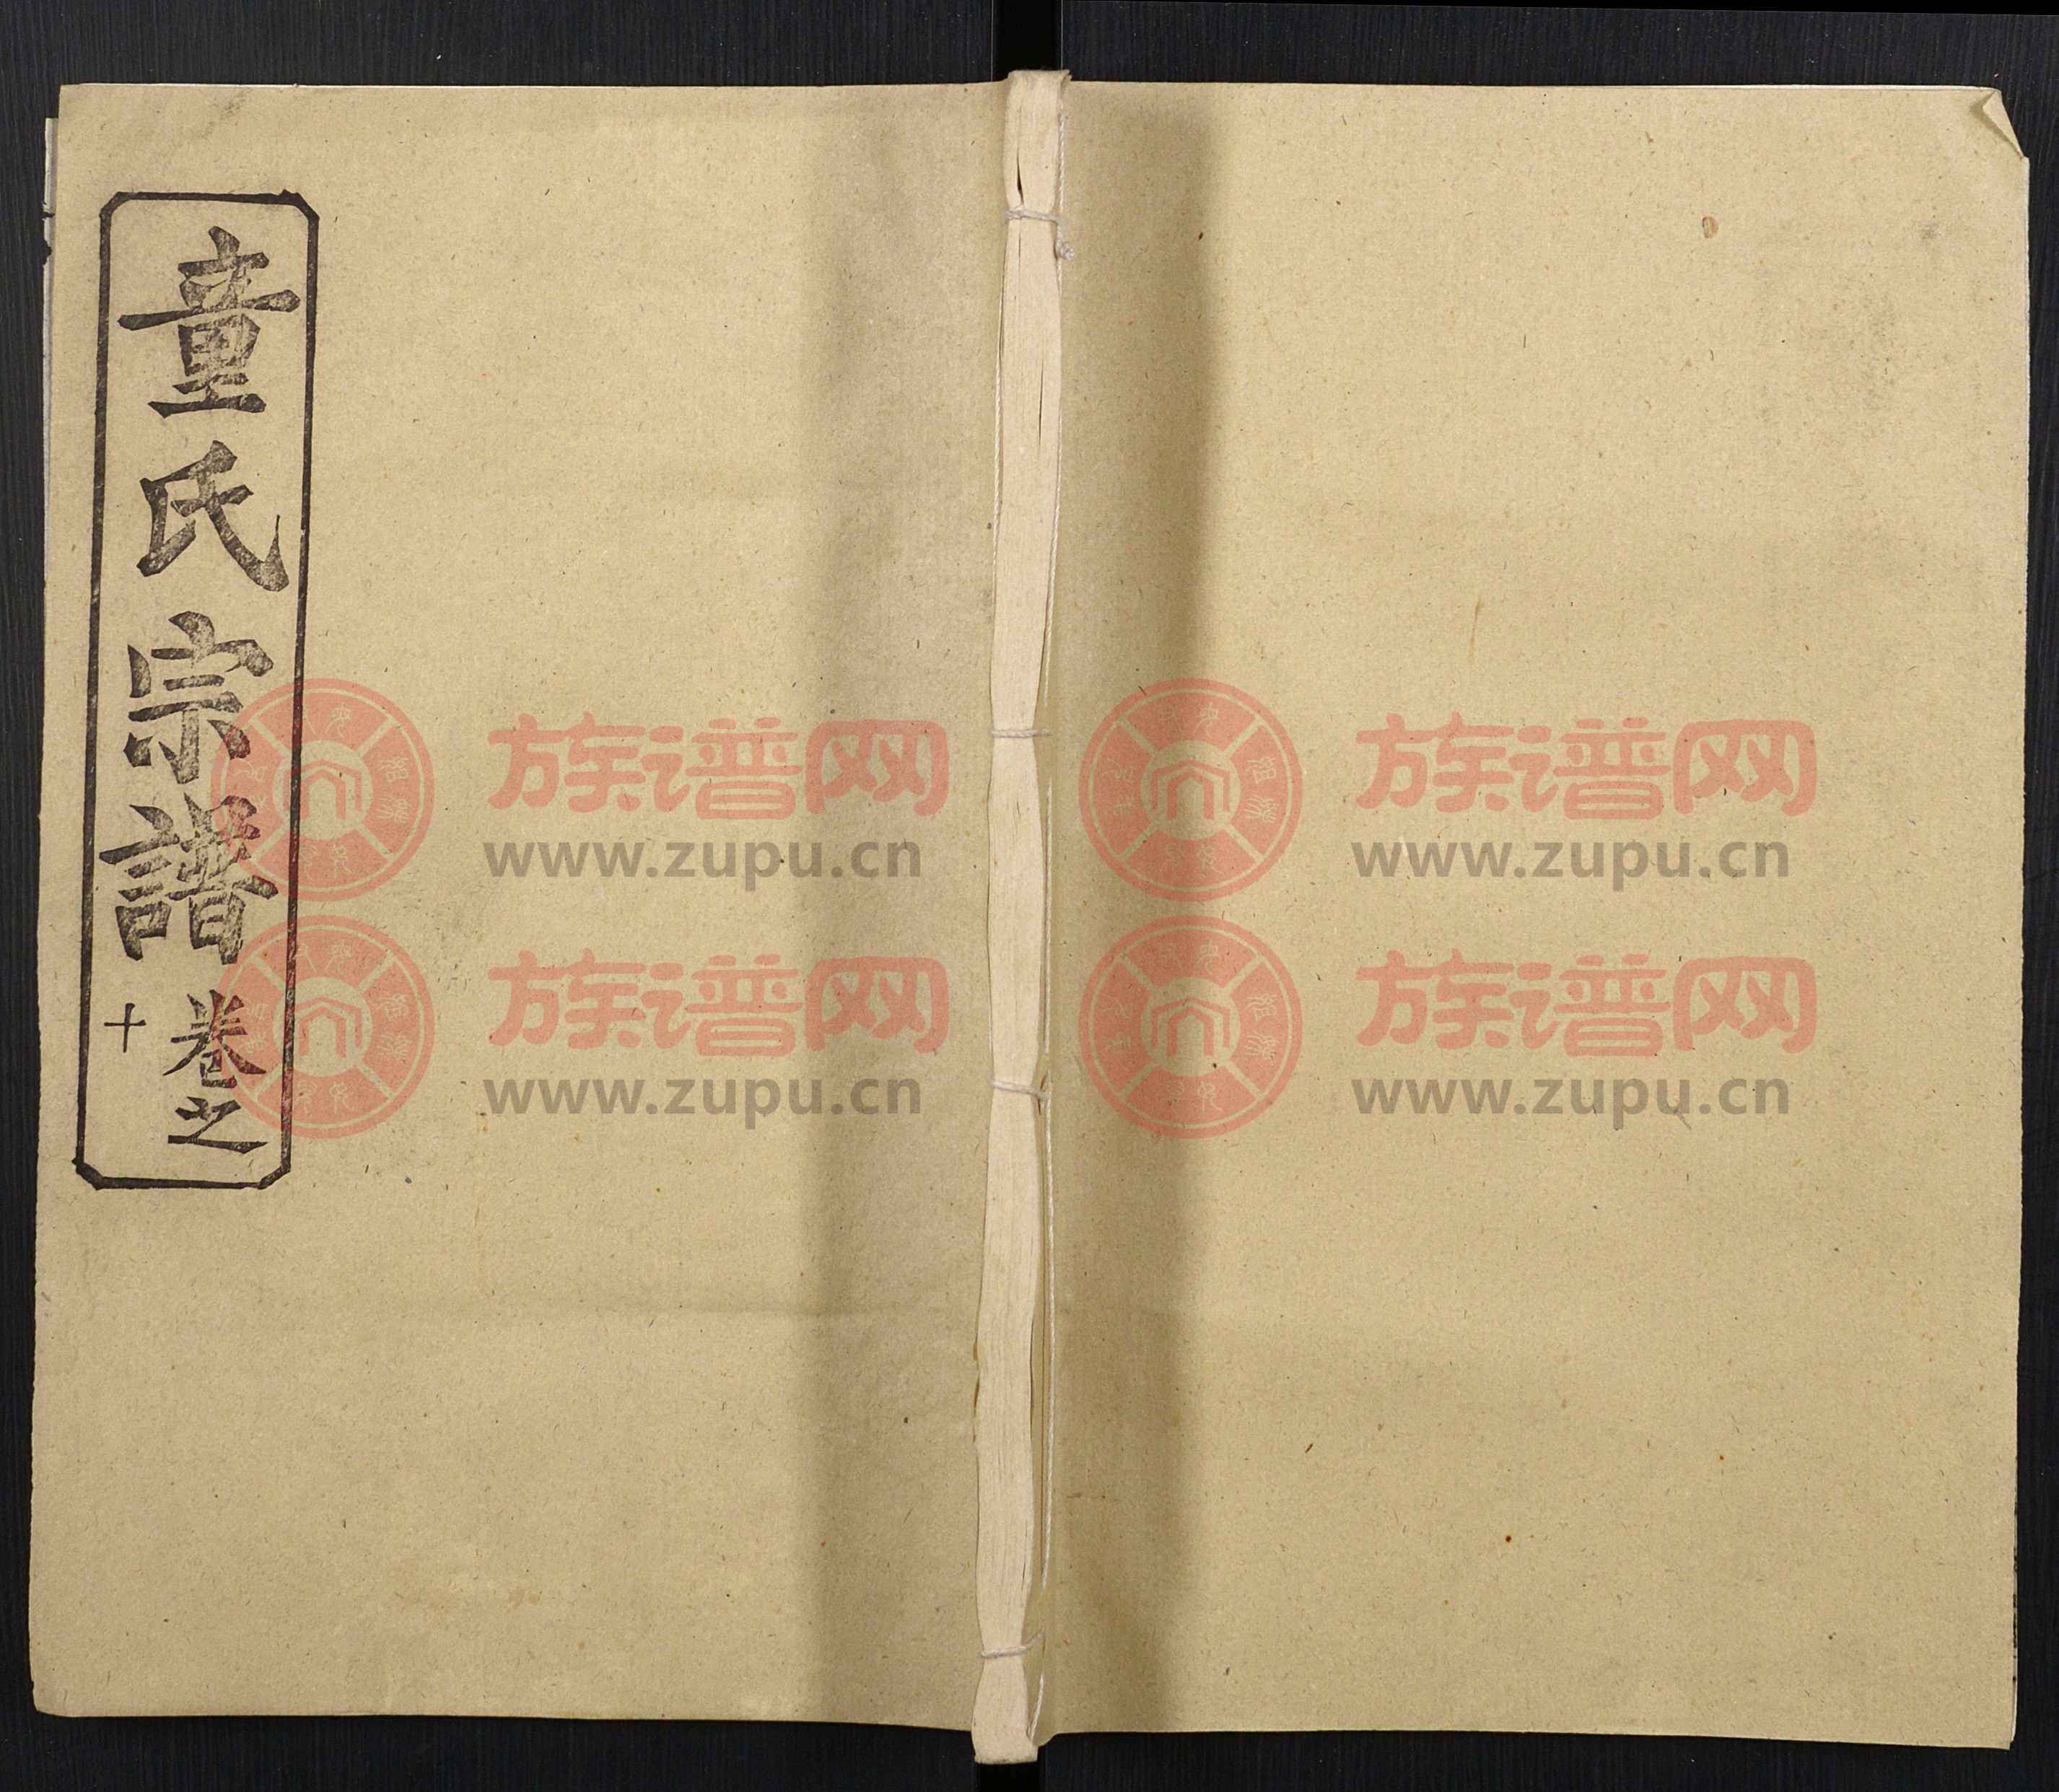 童氏宗譜
卷之
十
族谱网
www.zupu.cn
族谱网
www.zupu.cn
族谱网
www.zupu.cn
族谱网
www.zupu.cn